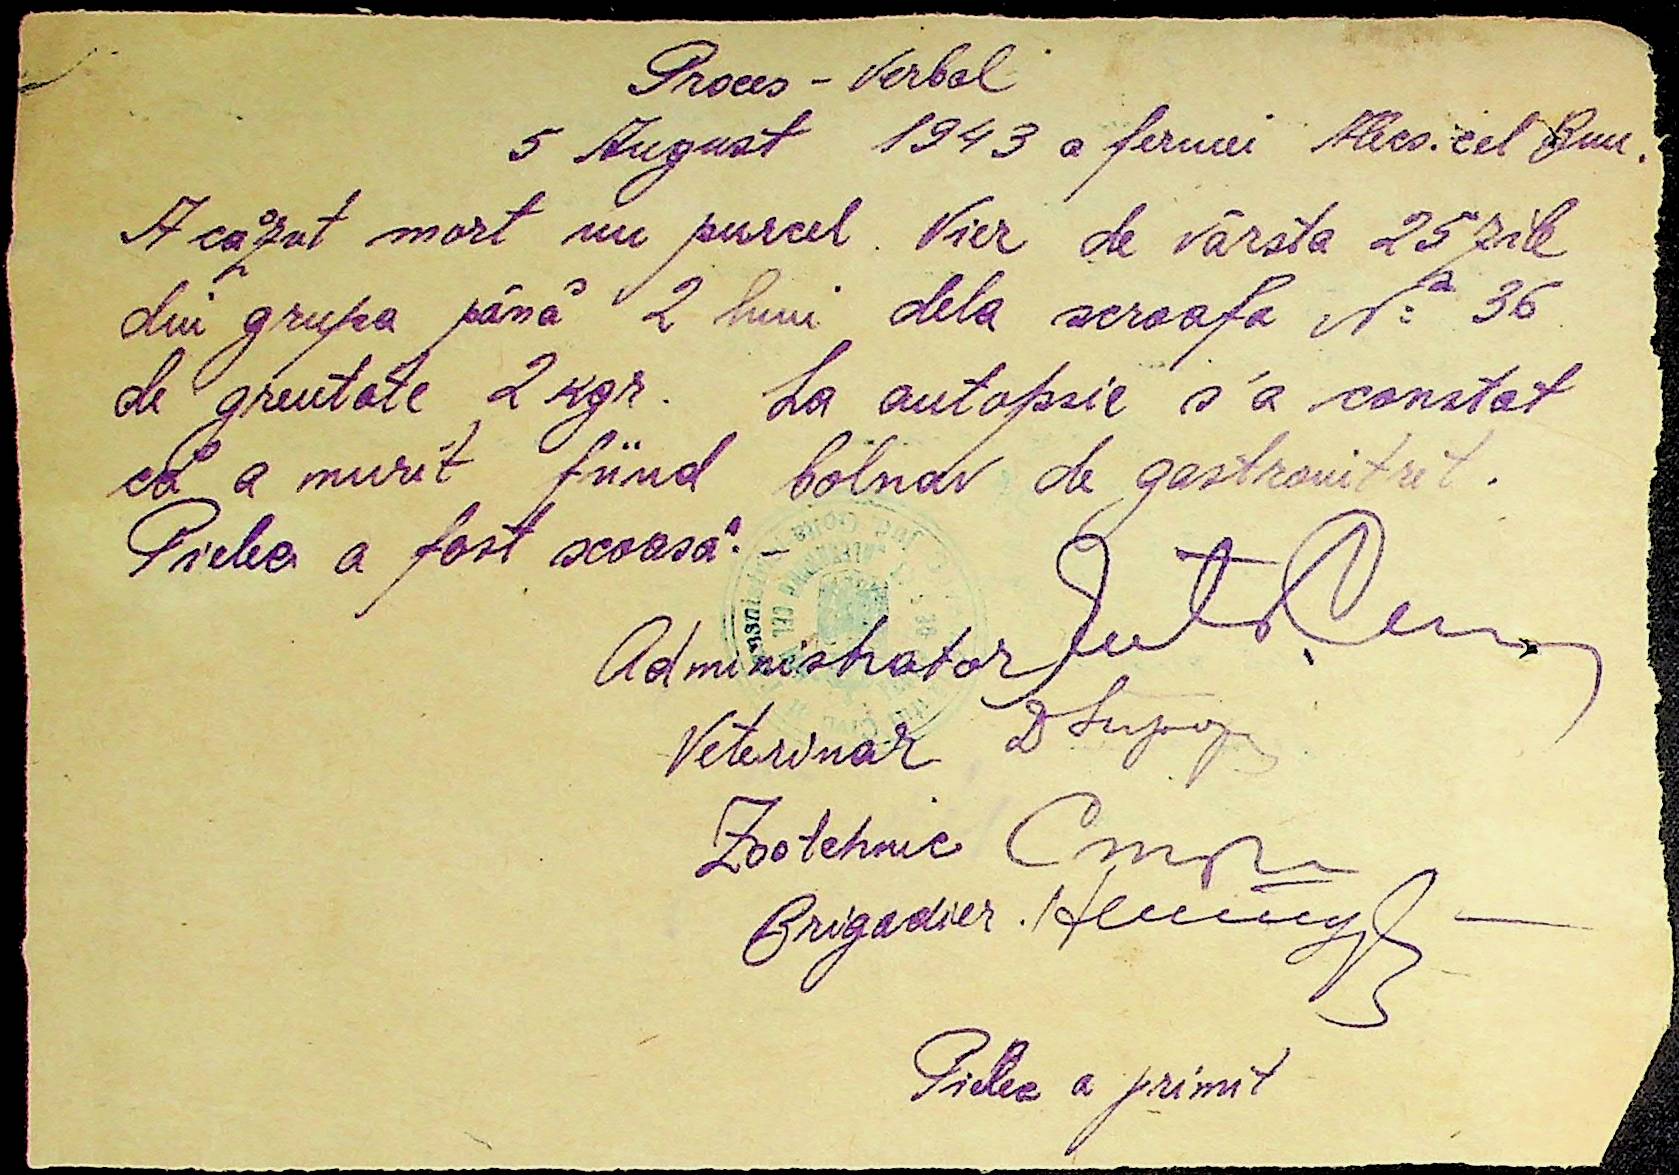 Proces - Verbal
5 August 1943 a fermei Alecs. cel Bun.
A căzut mort un purcel Vier de vârsta 25 zile
din grupa până 2 luni dela scroafa Nº 36
de greutate 2 kgr. La autopsie s'a constat
că a murit fiind bolnav de gastronitrit.
Pielea a fost scoasă. -
Administrator
Veterinar
Zootehnic
Brigadier.
Pielea a primit